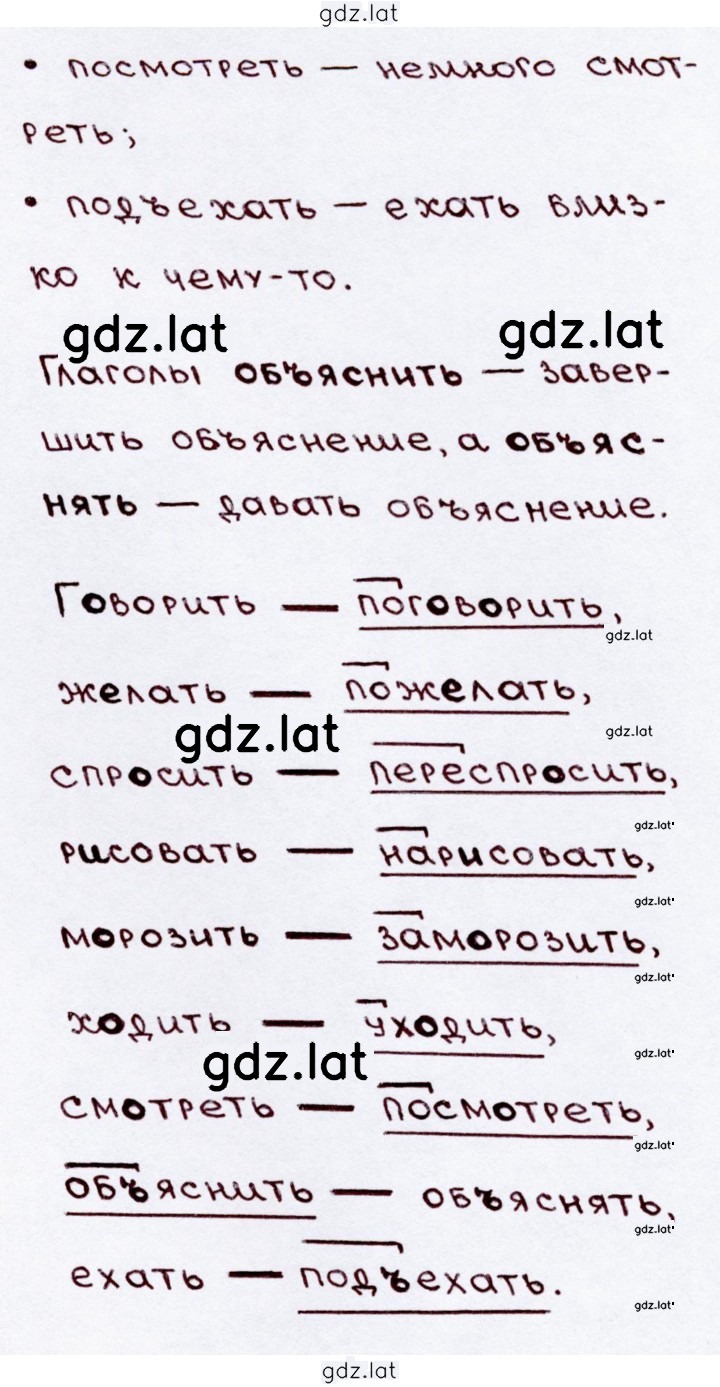 gdz.lat
• посмотреть — немного смот-
реть;
• подъехать — ехать близ-
ко к чему-то.
gdz.lat gdz.lat
Глаголы объяснить — завер-
шить объяснение, а объяс-
нять — давать объяснение.
Говорить — поговорить,
gdz.lat
желать — пожелать,
gdz.lat gdz.lat
спросить — переспросить,
gdz.lat
рисовать — нарисовать,
gdz.lat
морозить — заморозить,
gdz.lat
ходить — уходить,
gdz.lat gdz.lat
смотреть — посмотреть,
gdz.lat
объяснить — объяснять,
gdz.lat
ехать — подъехать.
gdz.lat
gdz.lat